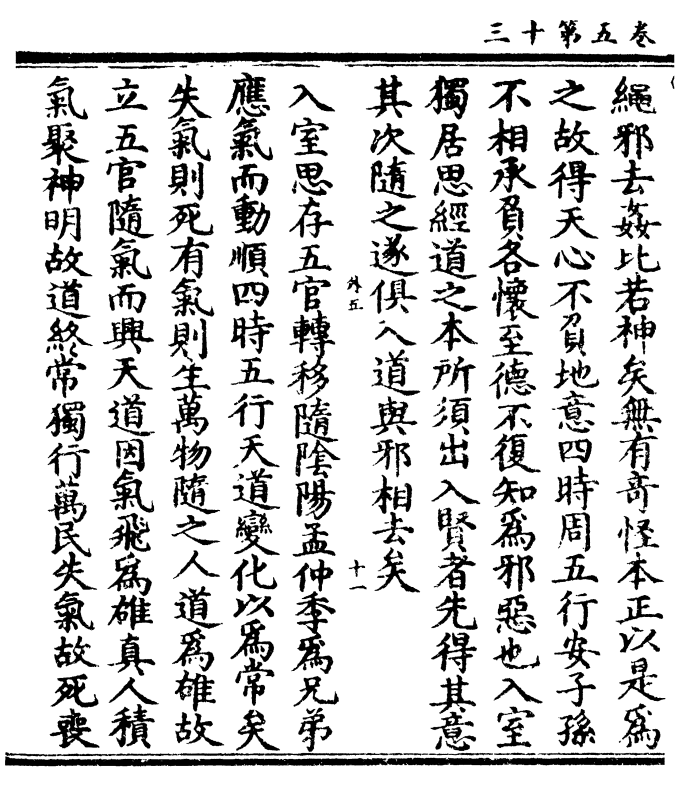 卷五第十三
繩邪去姦比若神矣無有奇怪本正以是爲
之故得天心不負地意四時周五行安子孫
不相承負各懷至德不復知爲邪惡也入室
獨居思經道之本所須出入賢者先得其意
其次隨之遂俱入道與邪相去矣
外五
十一
入室思存五官轉移隨陰陽孟仲季爲兄弟
應氣而動順四時五行天道變化以爲常矣
失氣則死有氣則生萬物隨之人道爲雄故
立五官隨氣而興天道因氣飛爲雄真人積
氣聚神明故道終常獨行萬民失氣故死喪